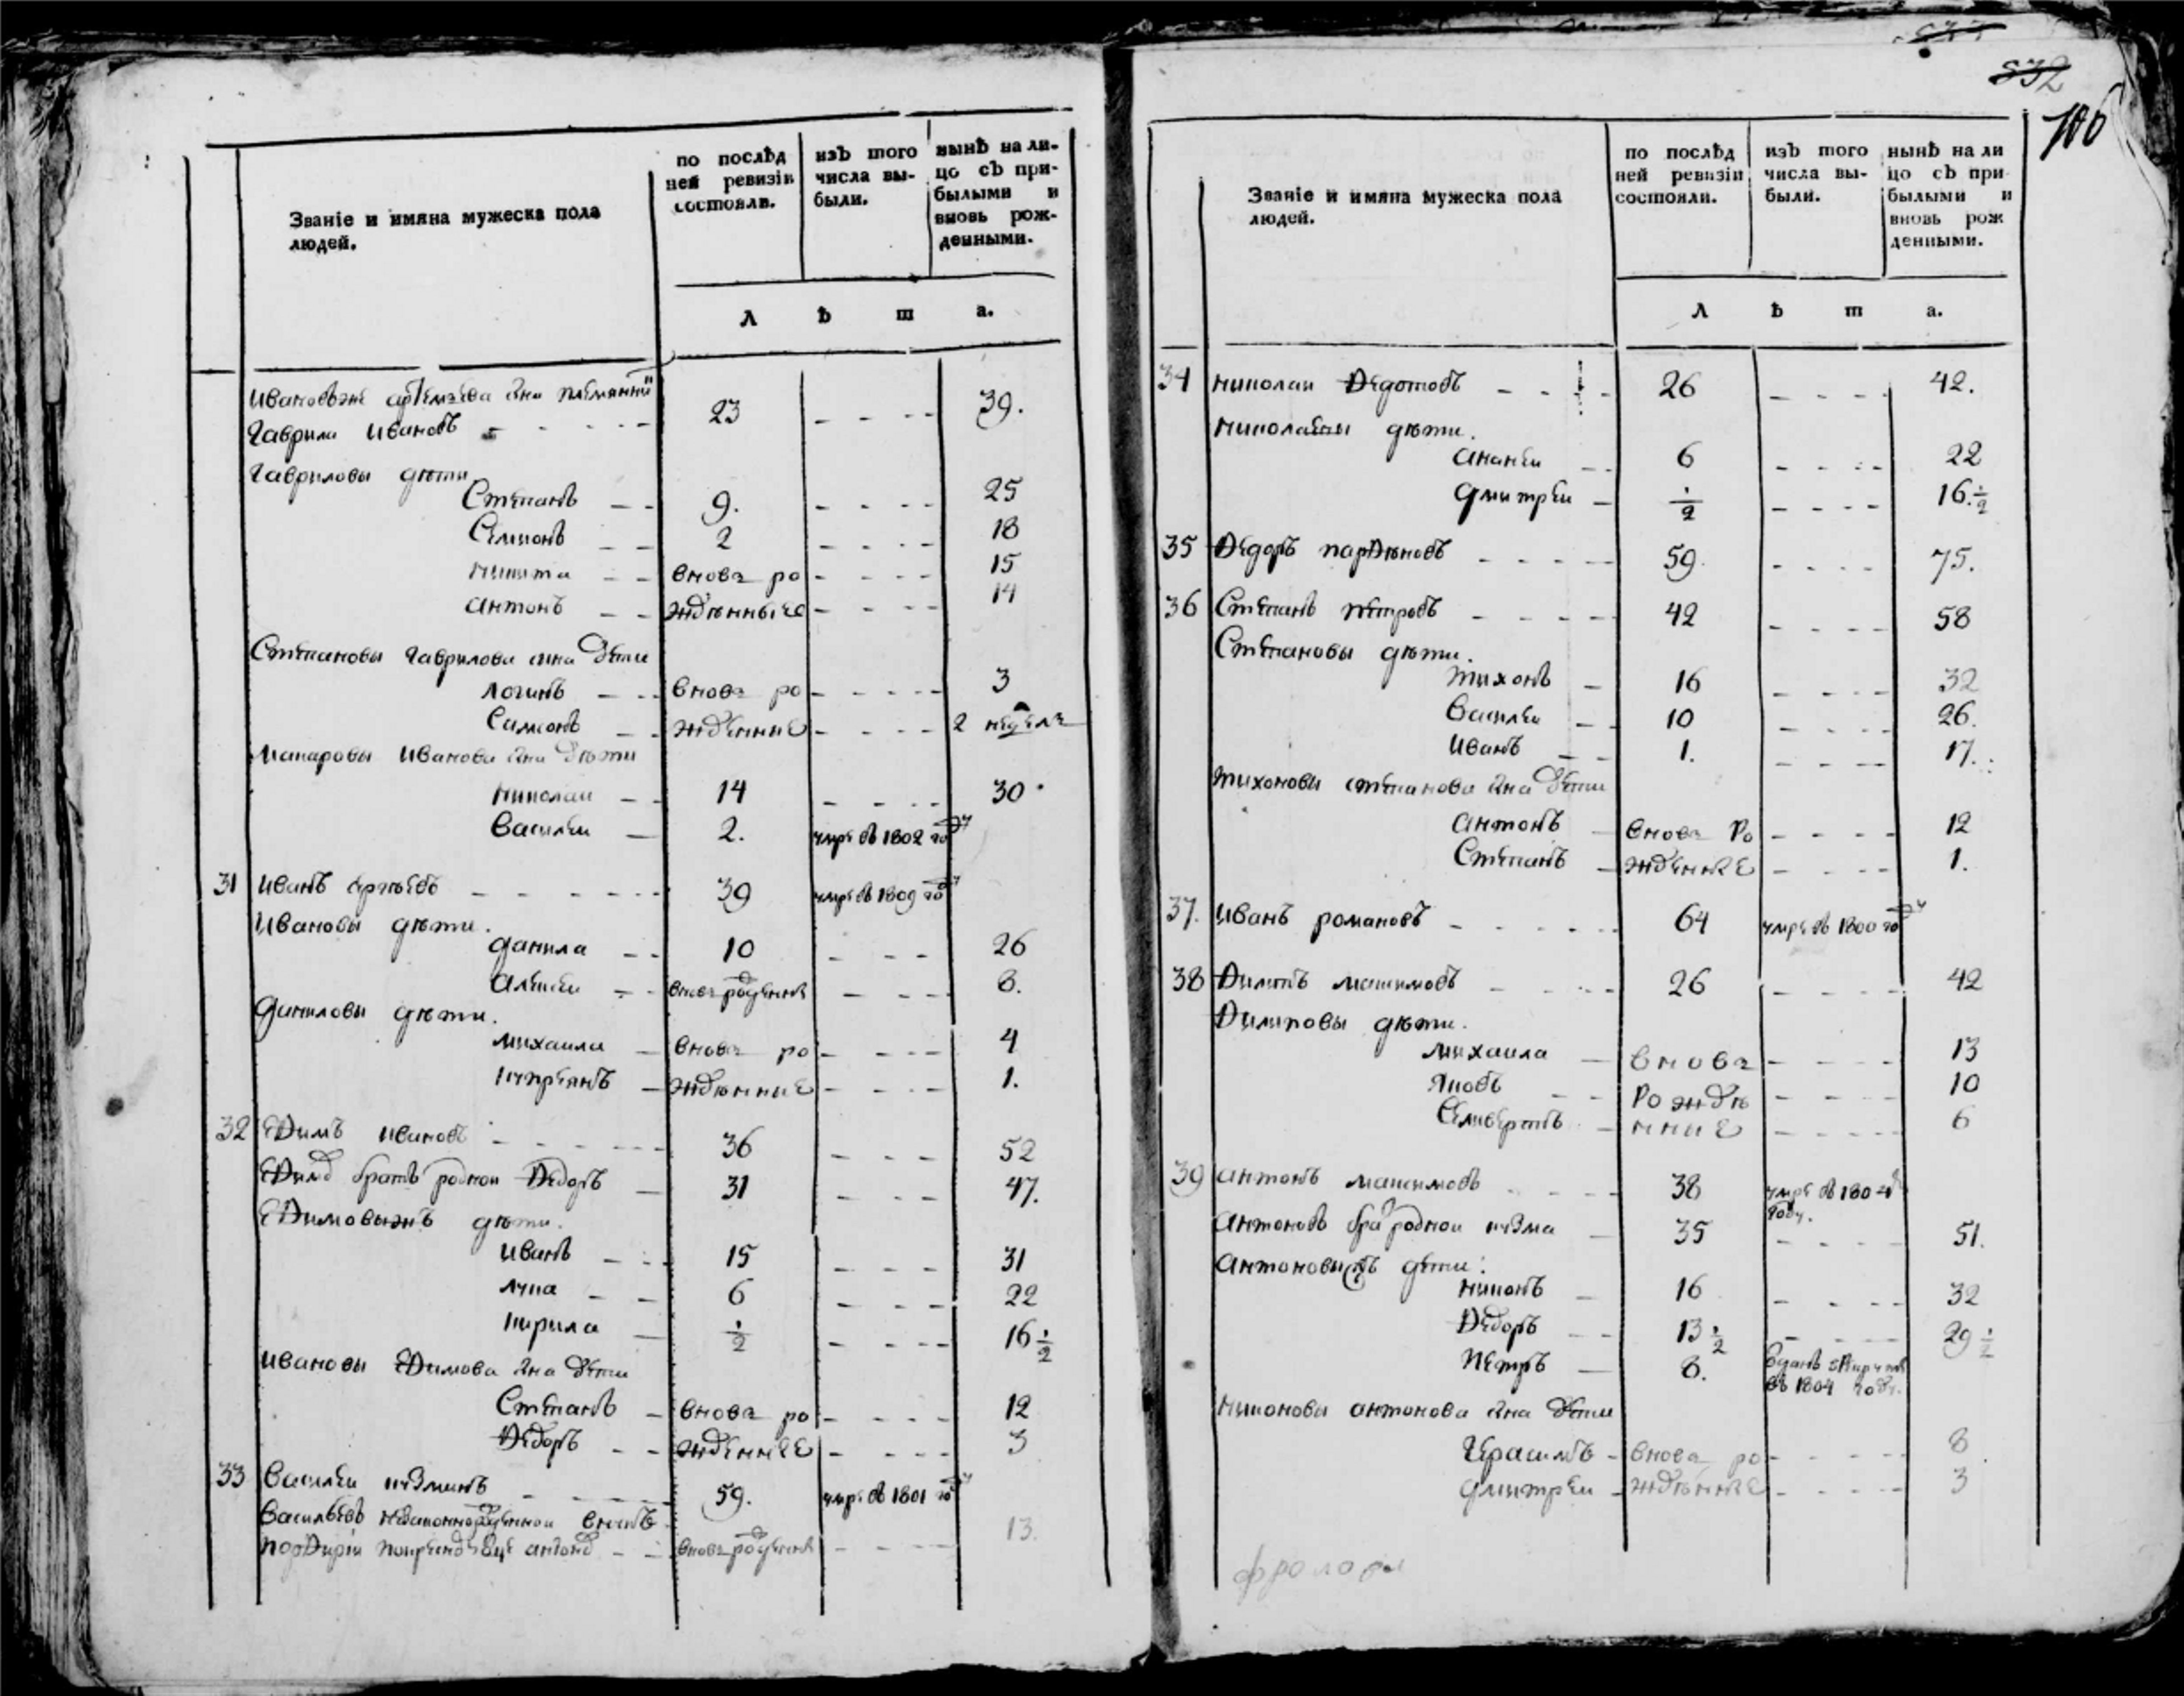 532
106
Званіе и имяна мужеска пола
людей.
по послѣд
ней ревизіи
состояли.
изъ того
числа вы-
были.
нынѣ на ли-
цо съ при-
былыми и
вновь рож-
денными.
Л ѣ т а.
Гаврила Ивановъ - - - - 23 - - - - 39.
Гавриловы дѣти
Степанъ - - 9. - - - - 25
Семионъ - - 2 - - - - 18
никита - - вновь ро - - - - 15
антонъ - - жденные - - - - 14
Степановы Гаврилова сна дети
логинъ - - вновь ро - - - - 3
Самсонъ - - жденные - - - - 2 недели
макаровы Иванова сна дѣти
николаи - - 14 - - - - 30.
Василеи - 2. умре въ 1802 году
31 Иванъ - - - - - 39 умре въ 1809 году
Ивановы дѣти.
данила - - 10 - - - 26
алексеи - - - - - 8.
даниловы дѣти.
михаила - вновь ро - - - - 4
куприянъ - жденные - - - - 1.
32 Ефимъ Ивановъ - - - - - 36 - - - 52
братъ роднои Федоръ - 31 - - - 47.
Ефимовыжъ дѣти.
Иванъ - - 15 - - - 31
лука - - 6 - - - 22
кирила - 1/2 - - - - 16 1/2
Ивановы Ефимова сна дети
Степанъ - вновь ро - - - - 12
Федоръ - - жденные - - - - 3
33 Василеи кузминъ - - - - 59. умре въ 1801 году
Васильевъ незаконнорожденнои
13.
Званіе и имяна мужеска пола
людей.
по послѣд
ней ревизіи
состояли.
изъ того
числа вы-
были.
нынѣ на ли
цо съ при
былыми и
вновь рож
денными.
Л ѣ т а.
34 николаи Федотовъ - - - - 26 - - - - 42.
николаевы дѣти.
ананеи - - 6 - - - - 22
дмитреи - 1/2 - - - - 16. 1/2
35 Федоръ парфеновъ - - - - 59. - - - - 75.
36 Степанъ петровъ - - - - 42 - - - - 58
Степановы дѣти.
тихонъ - 16 - - - - 32
Василеи - - 10 - - - - 26.
Иванъ - - 1. - - - - 17.
тихоновы степанова сна дети
антонъ - вновь ро - - - - 12
Степанъ - жденные - - - - 1.
37. Иванъ романовъ - - - - - 64 умре въ 1800 году
38 Филипъ макимовъ - - - - 26 - - - - 42
Филиповы дѣти.
михаила - вновь - - - - 13
яковъ - - рожде - - - - 10
Селиверстъ - нные - - - - 6
39 антонъ макимовъ - - - - 38 умре въ 1804
году.
антоновъ бра роднои кузма - 35 - - - - 51.
дети.
никонъ - 16 - - - - 32
Федоръ - - 13 1/2 - - - - 29 1/2
петръ - 8. въ рекруты
въ 1804 году.
никоновы антонова сна дети
Герасимъ - вновь ро - - - - 8
дмитреи - жденные - - - - 3